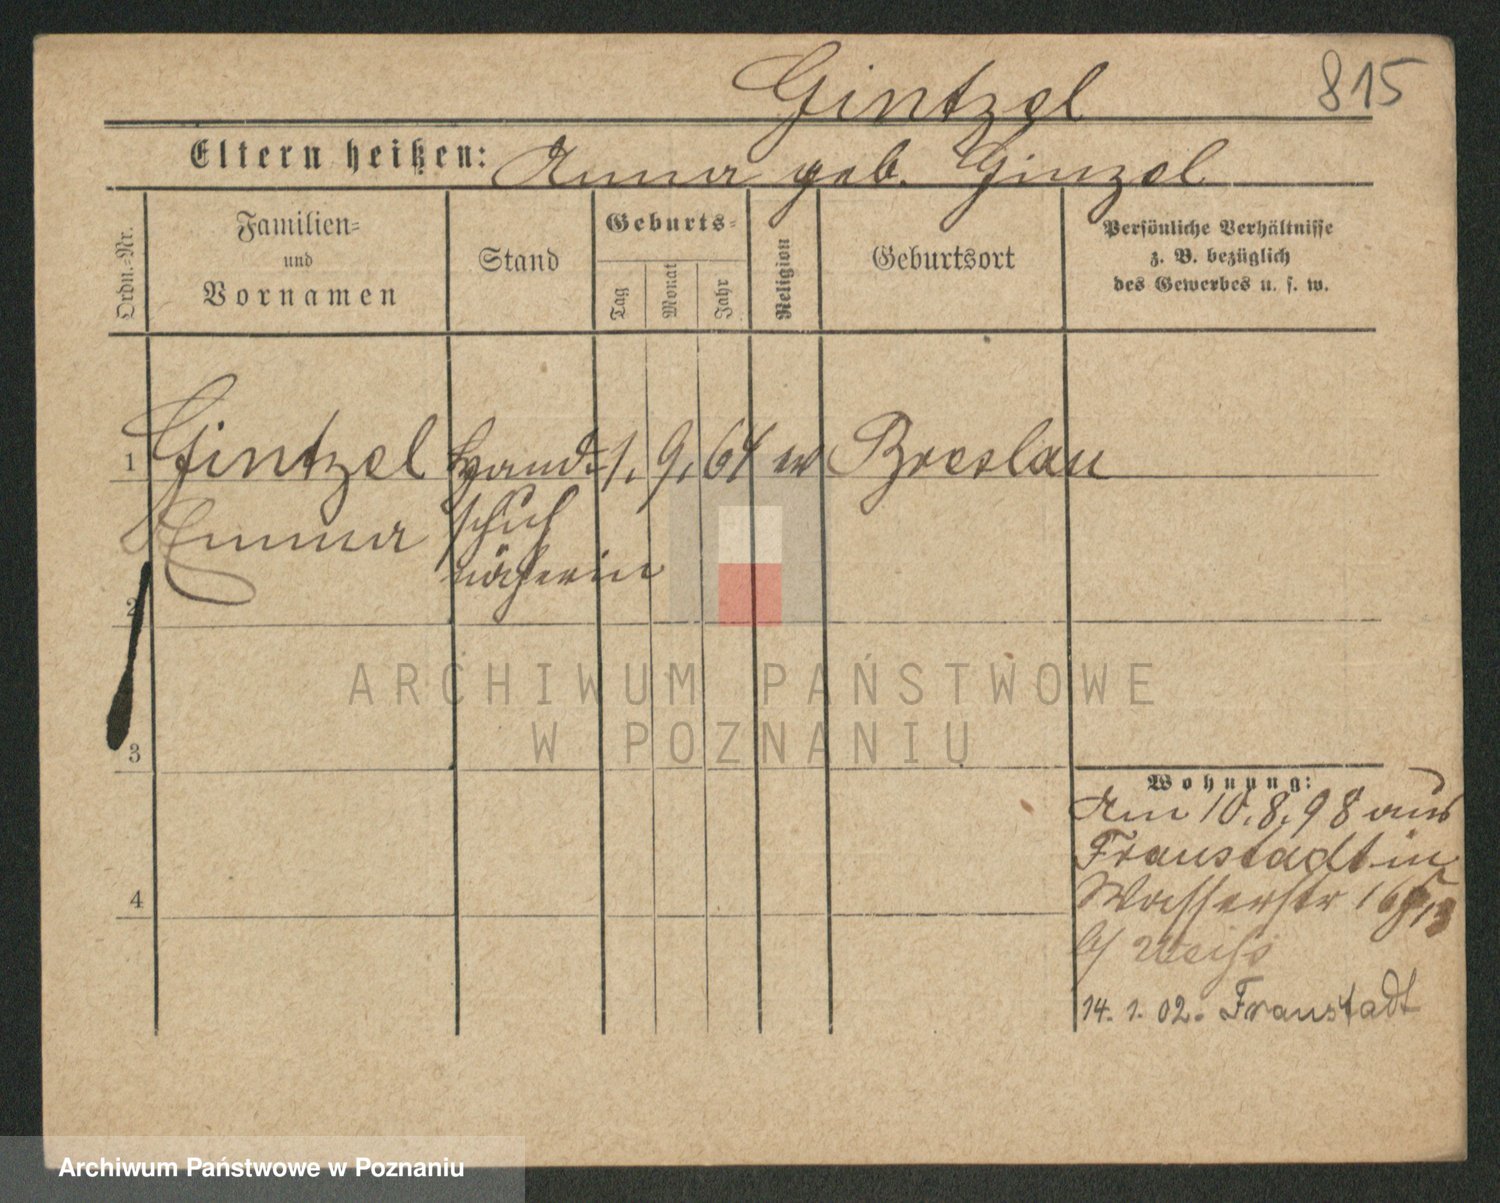 Gintzel
815
Eltern heißen: Anna geb. Ginzel
Ordn.-Nr.
Familien-
und
Vornamen
Stand
Geburts-
Tag
Monat
Jahr
Religion
Geburtsort
Persönliche Verhältnisse
z. B. bezüglich
des Gewerbes u. s. w.
1 Gintzel Hand- 1. 9. 64 ev Breslau
Emma schuh
näherin
2
3
4
Wohnung:
Am 10.8.98 aus
Fraustadt in
Wasserstr 16
b/ Weiß
14. 1. 02. Fraustadt
ARCHIWUM PAŃSTWOWE
W POZNANIU
Archiwum Państwowe w Poznaniu